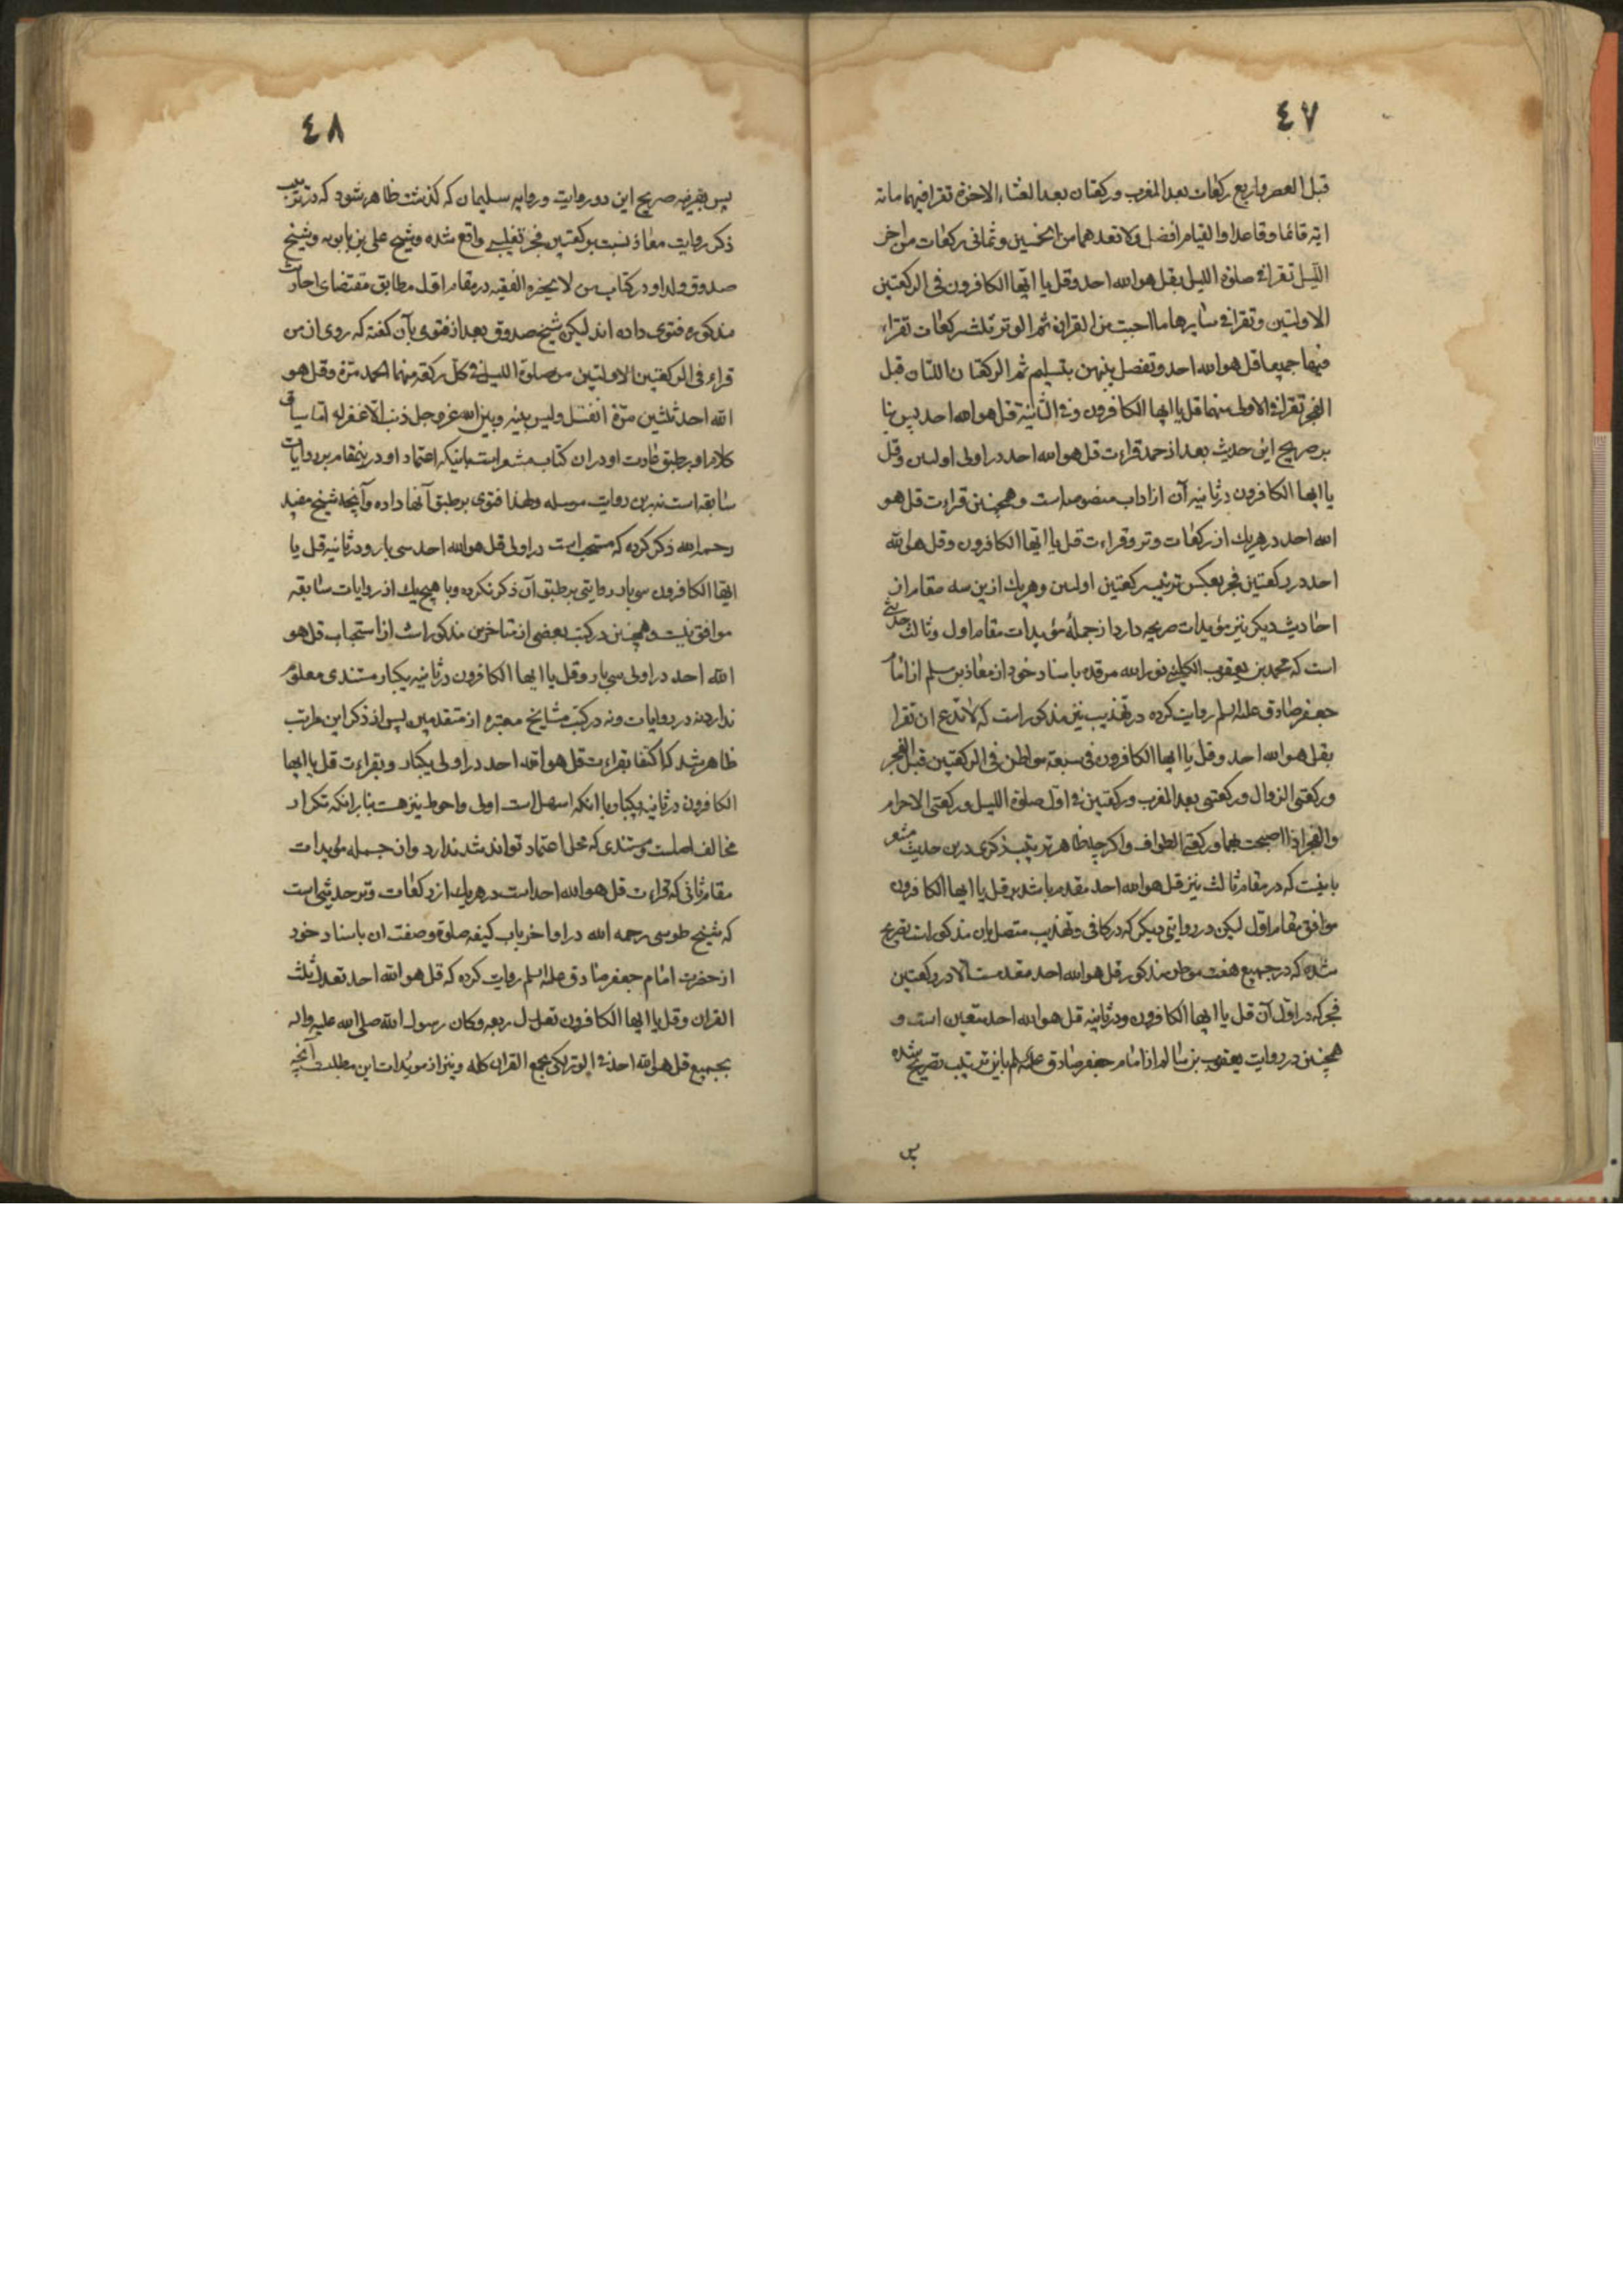 ٤٧
قبل العصر واربع ركعات بعد المغرب وركعتان بعد العشاء الاخرة تقرا فيهما مائة
اية قائما وقاعدا والقيام افضل ولا تعدهما من الخمسين وثماني ركعات من اخر
الليل تقرا في صلوة الليل بقل هو الله احد وقل يا ايها الكافرون في الركعتين
الاولتين وتقرا في سايرها ما احببت من القران ثم الوتر ثلث ركعات تقراء
فيها جميعا قل هو الله احد وتفصل بينهن بتسليم ثم الركعتان اللتان قبل
الفجر تقرا في الاولى منهما قل يا ايها الكافرون وفي الثانية قل هو الله احد پس بنا
بر صريح اين حديث بعد از حمد قراءت قل هو الله احد در اولى اوليين وقل
يا ايها الكافرون در ثانيه آن از اداب منصوصه است وهمچنين قراءت قل هو
الله احد در هريك از ركعات وتر وقراءت قل يا ايها الكافرون وقل هو الله
احد در ركعتين فجر بعكس ترتيب ركعتين اوليين وهريك ازين سه مقام از
احاديث ديكر نيز مؤيدات صريحه دارد از جملهٔ مؤيدات مقام اول وثالث حديثى
است كه محمد بن يعقوب الكلينى نور الله مرقده باسناد خود از معاذ بن مسلم از امام
جعفر صادق عليه السلم روايت كرده در تهذيب نيز مذكور است كه لا تدع ان تقرا
بقل هو الله احد وقل يا ايها الكافرون فى سبعة مواطن فى الركعتين قبل الفجر
وركعتى الزوال وركعتى بعد المغرب وركعتين في اول صلوة الليل وركعتى الاحرام
والفجر اذا اصبحت بهما وركعتى الطواف واكرچه ظاهر ترتيب ذكرى درين حديث مشعر
باينست كه در مقام ثالث نيز قل هو الله احد مقدم باشد بر قل يا ايها الكافرون
موافق مقام اول ليكن در روايتى ديكر كه در كافى وتهذيب متصل بان مذكور است تصريح
شده كه در جميع هفت موطن مذكور قل هو الله احد مقدمست الا در ركعتين
فجر كه در اول آن قل يا ايها الكافرون ودر ثانيه قل هو الله احد متعين است و
همچنين در روايت يعقوب بن سالم از امام جعفر صادق عليه السلم باين ترتيب تصريح شده
پس
٤٨
پس بقرينه صريح اين دو روايت وروايه سليمان كه كذشت ظاهر شود كه در ترتيب
ذكر روايت معاذ نسبت بركعتين فجر تغليبى واقع شده وشيخ على بن بابويه وشيخ
صدوق ولد او در كتاب من لا يحضره الفقيه در مقام اول مطابق مقتضاى احاديث
مذكوره فتوى داده اند ليكن شيخ صدوق بعد از فتوى بآن كفته كه روى ان من
قراء فى الركعتين الاولتين من صلوة الليل في كل ركعة منهما الحمد مرّة وقل هو
الله احد ثلثين مرّة انفتل وليس بينه وبين الله عز وجل ذنب الا غفر له اما سياق
كلام او بر طبق عادت او در ان كتاب مشعر است باينكه اعتماد او درينمقام بر روايات
سابقه است نه برين روايت مرسله ولهذا فتوى بر طبق آنها داده وآنچه شيخ مفيد
رحمه الله ذكر كرده كه مستحب است در اولى قل هو الله احد سى بار ودر ثانيه قل يا
ايها الكافرون سى بار روايتى بر طبق آن ذكر نكرده وبا هيچيك از روايات سابقه
موافق نيست وهمچنين در كتب بعضى از متاخرين مذكور است از استحباب قل هو
الله احد در اولى سى بار وقل يا ايها الكافرون در ثانيه يكبار مستندى معلوم
ندارد نه در روايات ونه در كتب مشايخ معتبره از متقدمين پس از ذكر اين مراتب
ظاهر شد كه اكتفا بقراءت قل هو الله احد در اولى يكبار وبقراءت قل يا ايها
الكافرون در ثانيه يكبار با انكه اسهل است اولى واحوط نيز هست بنا بر انكه تكرار
مخالف اصلست ومستندى كه محل اعتماد تواند شد ندارد واز جمله مؤيدات
مقام ثانى كه قراءت قل هو الله احد است در هريك از ركعات وتر حديثى است
كه شيخ طوسى رحمه الله در اواخر باب كيفيه صلوة وصفت ان باسناد خود
از حضرت امام جعفر صادق عليه السلم روايت كرده كه قل هو الله احد تعدل ثلث
القران وقل يا ايها الكافرون تعدل ربعه وكان رسول الله صلى الله عليه واله
يجمع قل هو الله احد في الوتر لكى يجمع القران كله ونيز از مويدات اين مطلب آنچه